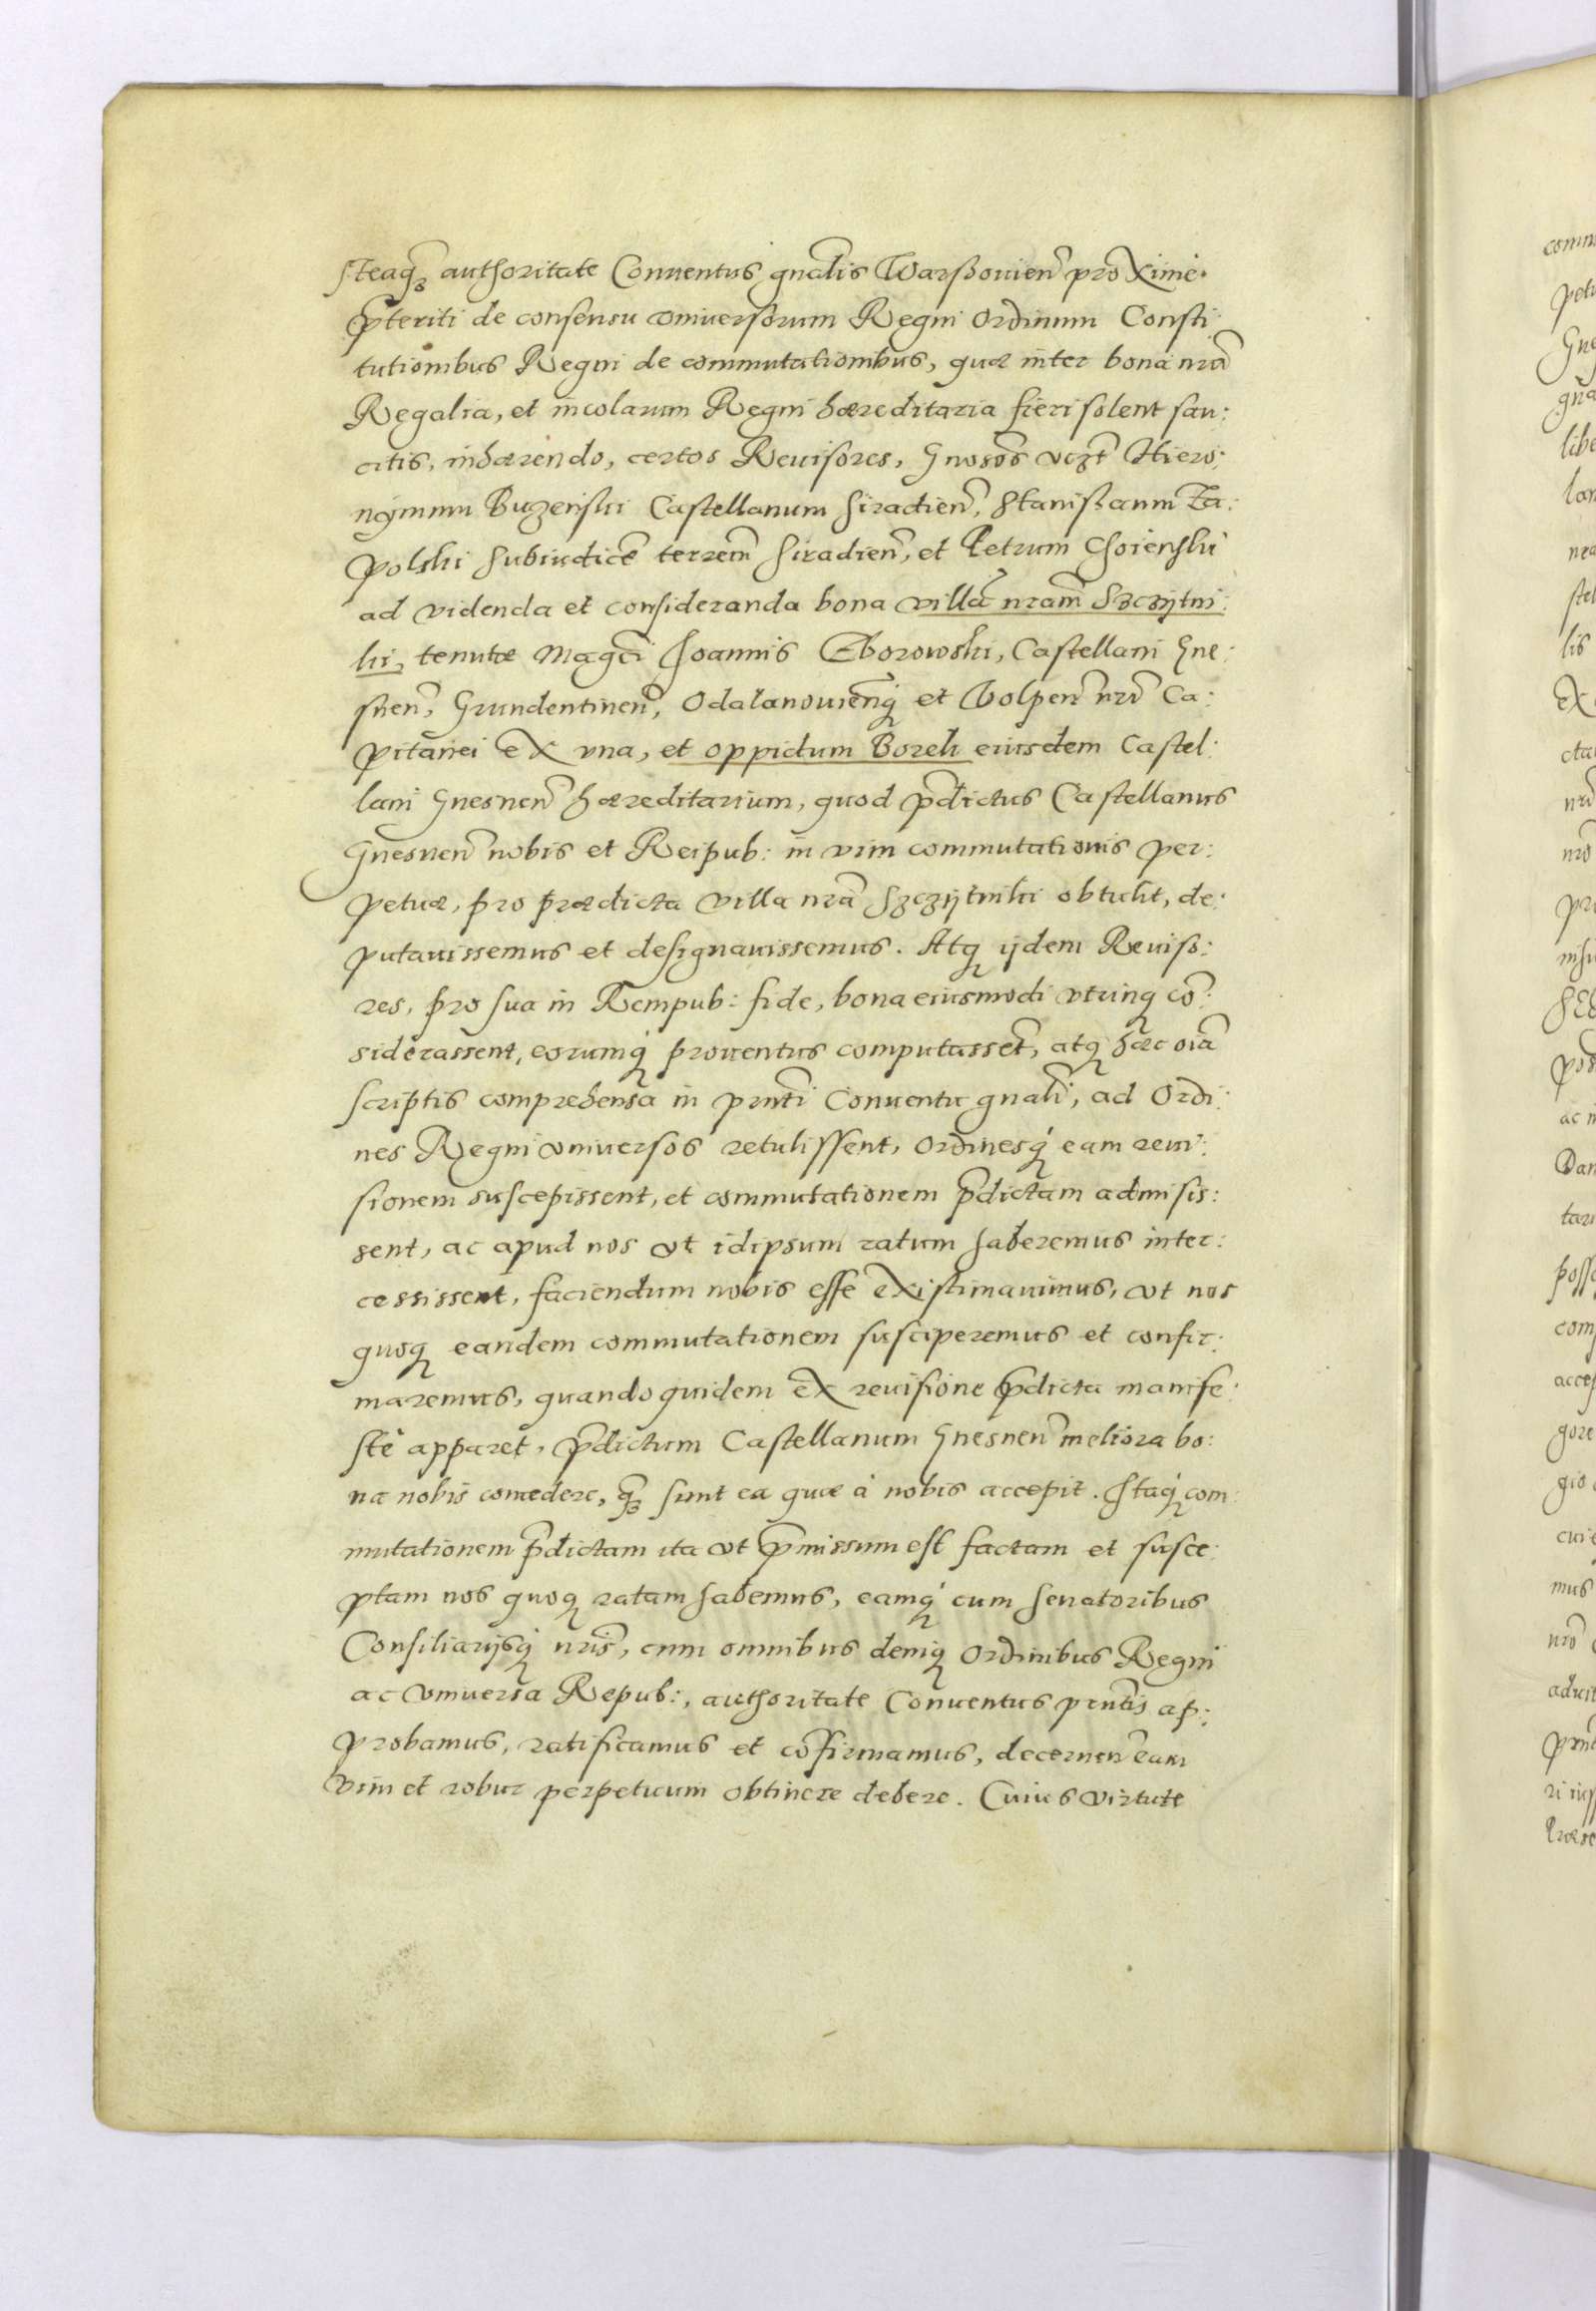 steaqꝫ authoritate Conuentus gnãlis Warßouien̄ proxime
p̄teriti de consensu vniuersorum Regni Ordinum Consti:
tutionibus Regni de commutationibus, quæ inter bona nrã
Regalia, et incolarum Regni hæreditaria fieri solent san:
citis, inhærendo, certos Reuisores, Gnosōs vczt̄ Hiero:
nÿmum Buzenski Castellanum Siradien̄, Stanißaum Za:
polski Subiudicē terrem̄ Siradien̄, et Petrum Choienski
ad videnda et consideranda bona villā nram̄ Szczÿtni:
ki, tenutæ Magc̄i Joannis Zborowski, Castellani Gne:
snen̄, Grundentinen̄, Odalanouien̄q́ et Volpen̄ nrī Ca:
pitanei ex vna, et oppidum Borek eiusdem Castel:
lani Gnesnen̄ hæreditarium, quod p̄dictus Castellanus
Gnesnen̄ nobis et Reipub: in vim commutationis per:
petuæ, pro prædicta villa nrã Szczÿtniki obtulit, de:
putauissemus et designauissemus. Atq̨ ijdem Reuiso:
res, pro sua in Rempub: fide, bona eiusmodi vtrinq̨ cō:
siderassent, eorumq́ prouentus computassēt, atq̨ hæc oīa
scriptis comprehensa in prn̄ti Conuentu gnali, ad Ordi:
nes Regni vniuersos retulissent, Ordinesq́ eam reui:
sionem suscepissent, et commutationem p̄dictam admisis:
sent, ac apud nos vt idipsum ratum haberemus inter:
cessissent, faciendum nobis esse existimauimus, vt nos
quoq̨ eandem commutationem susciperemus et confir:
maremus, quandoquidem ex reuisione p̄dicta manife:
stè apparet, p̄dictum Castellanum Gnesnen̄ meliora bo:
na nobis concedere, qꝫ̄ sunt ea quæ à nobis accepit. Itaq́ com:
mutationem p̄dictam ita vt p̄missum est factam et susce:
ptam nos quoq̨ ratam habemus, eamq́ cum Senatoribus
Consiliarijsq́ nris̄, cum omnibus deniq̨ Ordinibus Regni
ac vniuersa Repub:, authoritate Conuentus prn̄tis ap:
probamus, ratificamus et cōfirmamus, decernen̄ eam
vim et robur perpetuum obtinere debere. Cuius virtute